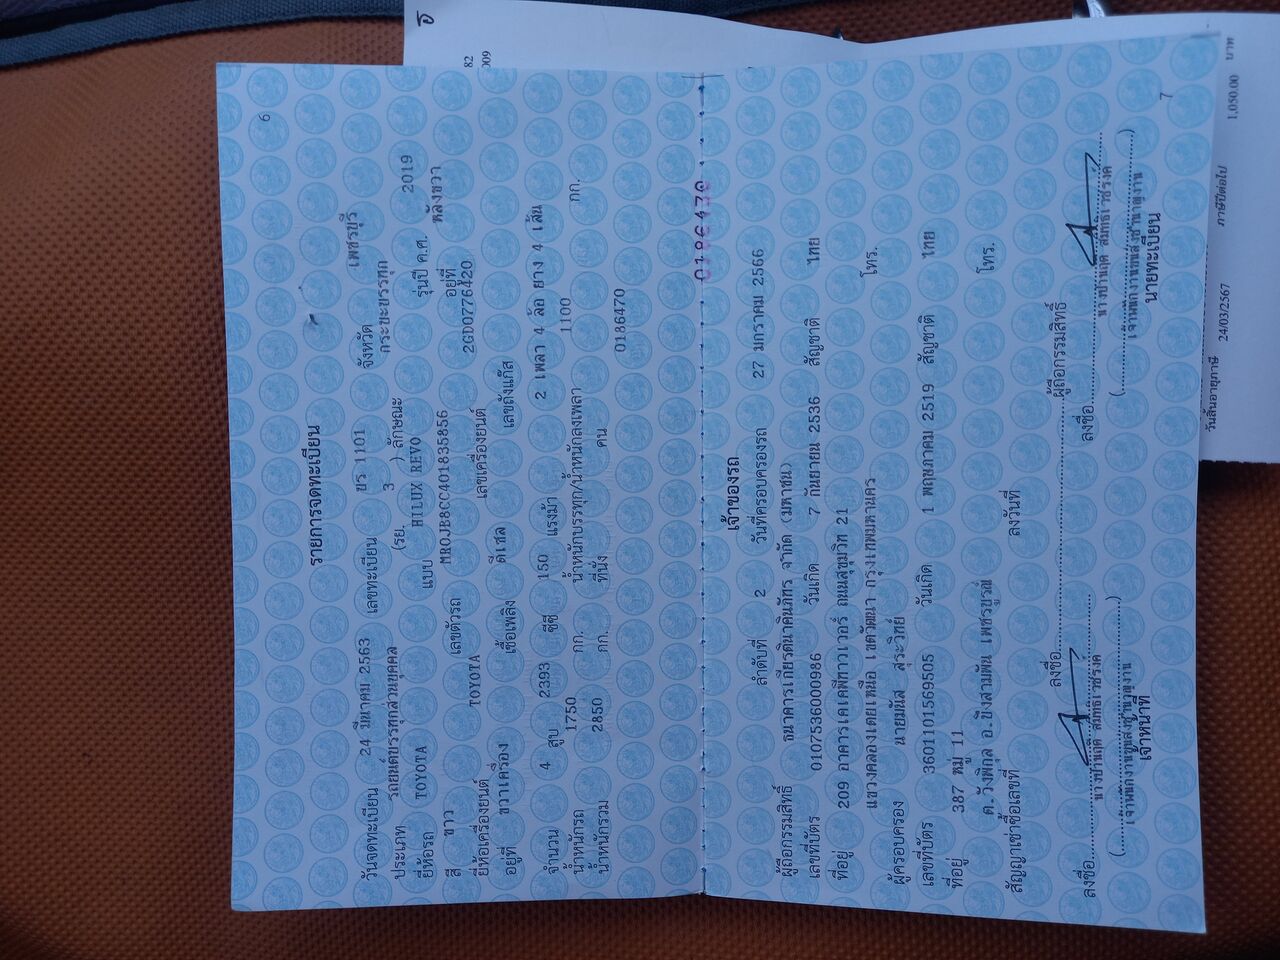 6
รายการจดทะเบียน
วันจดทะเบียน 24 มีนาคม 2563 เลขทะเบียน ขร 1101 จังหวัด เพชรบุรี
ประเภท รถยนต์บรรทุกส่วนบุคคล (รย. 3 ) ลักษณะ กระบะบรรทุก
ยี่ห้อรถ TOYOTA แบบ HILUX REVO รุ่นปี ค.ศ. 2019
สี ขาว เลขตัวรถ MR0JB8CC401835856 อยู่ที่ หลังขวา
ยี่ห้อเครื่องยนต์ TOYOTA เลขเครื่องยนต์ 2GD0776420
อยู่ที่ ขวาเครื่อง เชื้อเพลิง ดีเซล เลขถังแก๊ส
จำนวน 4 สูบ 2393 ซีซี 150 แรงม้า 2 เพลา 4 ล้อ ยาง 4 เส้น
น้ำหนักรถ 1750 กก. น้ำหนักบรรทุก/น้ำหนักลงเพลา 1100 กก.
น้ำหนักรวม 2850 กก. ที่นั่ง คน
0186470
0186470
เจ้าของรถ
ลำดับที่ 2 วันที่ครอบครองรถ 27 มกราคม 2566
ผู้ถือกรรมสิทธิ์ ธนาคารเกียรตินาคินภัทร จำกัด (มหาชน)
เลขที่บัตร 0107536000986 วันเกิด 7 กันยายน 2536 สัญชาติ ไทย
ที่อยู่ 209 อาคารเคเคพีทาวเวอร์ ถนนสุขุมวิท 21
แขวงคลองเตยเหนือ เขตวัฒนา กรุงเทพมหานคร โทร.
ผู้ครอบครอง นายมนัส สุระวิทย์
เลขที่บัตร 3601101569505 วันเกิด 1 พฤษภาคม 2519 สัญชาติ ไทย
ที่อยู่ 387 หมู่ 11
ต.วังพิกุล อ.บึงสามพัน เพชรบูรณ์ โทร.
สัญญาเช่าซื้อเลขที่ ลงวันที่
ลงชื่อ ผู้ถือกรรมสิทธิ์
ลงชื่อ ลงชื่อ
เจ้าหน้าที่ นายทะเบียน
7
82
009
วันสิ้นอายุภาษี 24/03/2567 ภาษีปีต่อไป 1,050.00 บาท